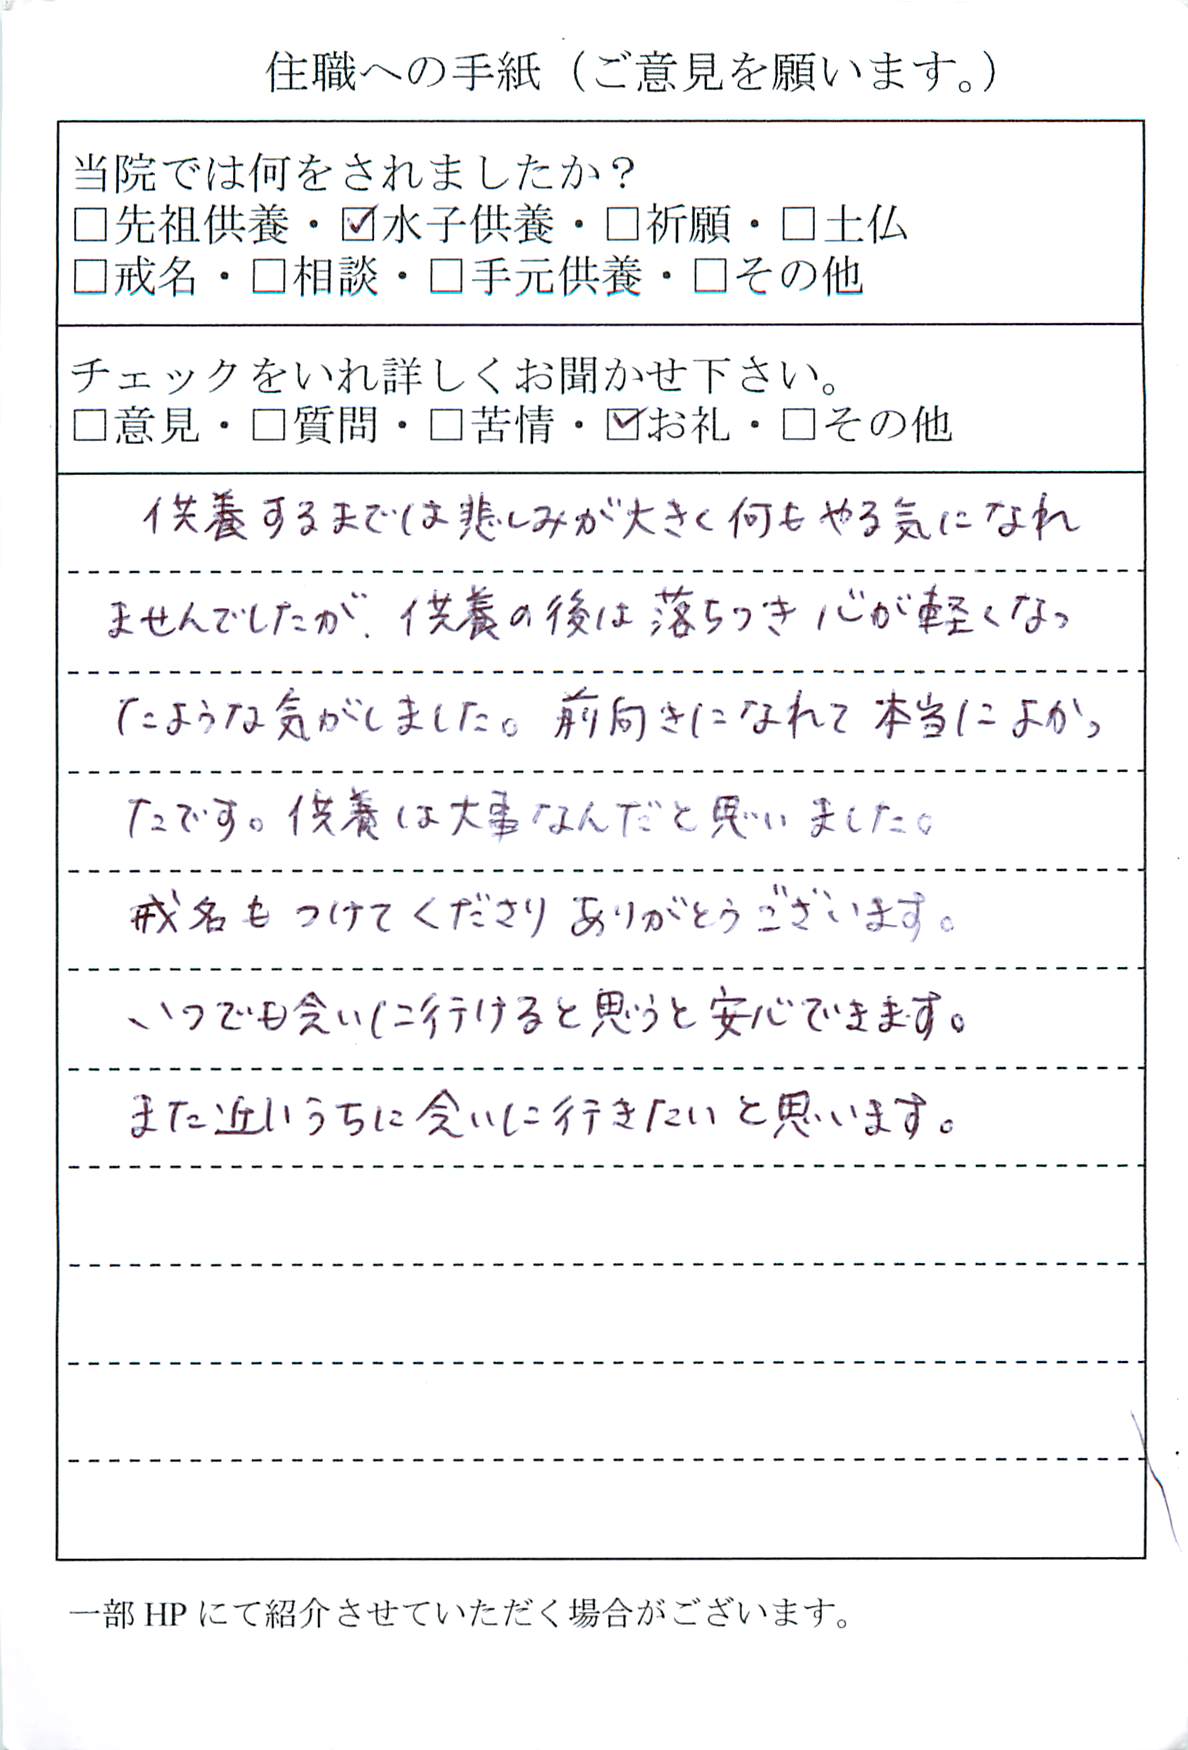 住職への手紙（ご意見を願います。）
当院では何をされましたか？
□先祖供養・☑水子供養・□祈願・□土仏
□戒名・□相談・□手元供養・□その他
チェックをいれ詳しくお聞かせ下さい。
□意見・□質問・□苦情・☑お礼・□その他
供養するまでは悲しみが大きく何もやる気になれ
ませんでしたが、供養の後は落ちつき心が軽くなっ
たような気がしました。前向きになれて本当によかっ
たです。供養は大事なんだと思いました。
戒名もつけてくださりありがとうございます。
いつでも会いに行けると思うと安心できます。
また近いうちに会いに行きたいと思います。
一部HPにて紹介させていただく場合がございます。